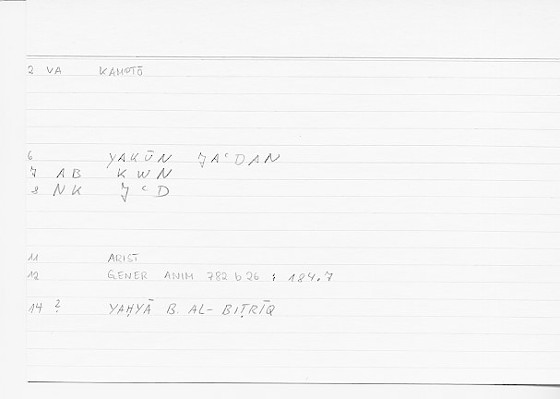 2 VA KAMPTŌ
6 YAKŪN JAʿDAN
7 AB KWN
8 NK JʿD
11 ARIST
12 GENER ANIM 782 b 26 ; 184.7
14 ? YAḤYĀ B. AL-BIṬRĪQ